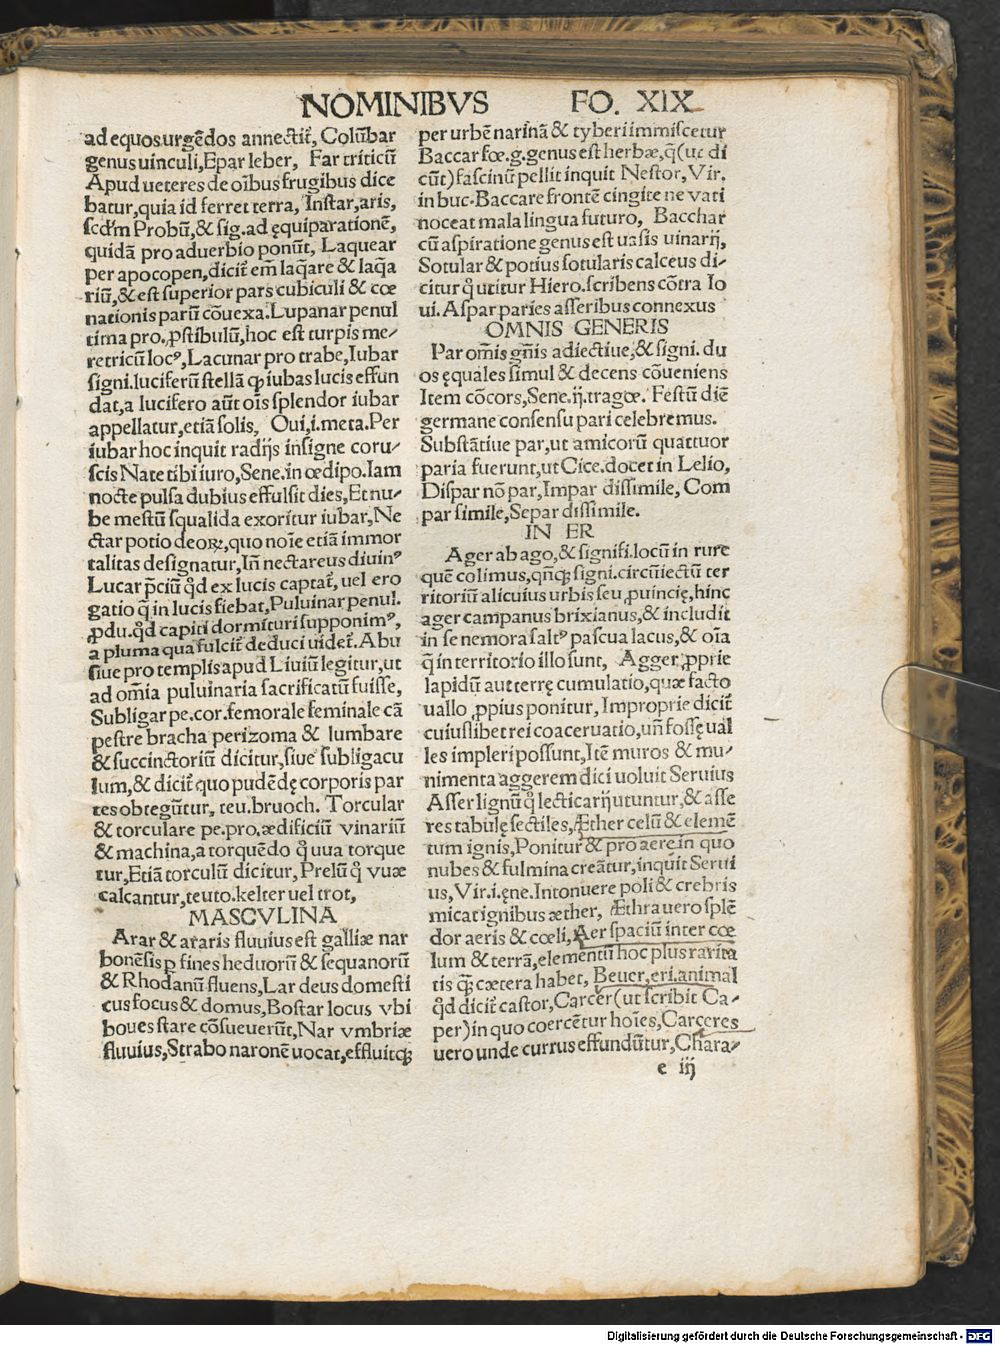 NOMINIBVS FO. XIX
ad equos urgẽdos annectit̃, Colũbar
genus uinculi, Epar leber, Far triticũ
Apud ueteres de oĩbus frugibus dice
batur, quia id ferret terra, Instar, aris,
scd̃m Probũ, & sig. ad ęquiparationẽ,
quidã pro aduerbio ponũt, Laquear
per apocopen, dicit̃ em̃ laq̃are & laq̃a
riũ, & est superior pars cubiculi & cœ
nationis parũ cõuexa. Lupanar penul
tima pro. ꝓstibulũ, hoc est turpis me⸗
retricũ locꝰ, Lacunar pro trabe, Iubar
signi. luciferũ stellã ꝙ iubas lucis effun
dat, a lucifero aũt oĩs splendor iubar
appellatur, etiã solis, Oui. i. meta. Per
iubar hoc inquit radijs insigne coru⸗
scis Nate tibi iuro, Sene. in œdipo. Iam
nocte pulsa dubius effulsit dies, Et nu⸗
be mestũ squalida exoritur iubar, Ne
ctar potio deoꝝ, quo noĩe etiã immor
talitas designatur, Iñ nectareus diuinꝰ
Lucar p̃ciũ qd̃ ex lucis captat̃, uel ero
gatio q̃ in lucis fiebat, Puluinar penul.
ꝓdu. qd̃ capiti dormituri supponimꝰ,
a pluma qua fulcit̃ deduci uidet̃. Abu
siue pro templis apud Liuiũ legitur, ut
ad om̃ia puluinaria sacrificatũ fuisse,
Subligar pe. cor. femorale feminale cã
pestre bracha perizoma & lumbare
& succinctoriũ dicitur, siue subligacu
lum, & dicit̃ quo pudẽdę corporis par
tes obtegũtur, teu. bruoch. Torcular
& torculare pe. pro. ædificiũ vinariũ
& machina, a torquẽdo q̃ uua torque
tur, Etiã torculũ dicitur, Prelũ q̃ vuæ
calcantur, teuto. kelter uel trot,
MASCVLINA
Arar & araris fluuius est galliæ nar
bonẽsis ꝑ fines heduorũ & sequanorũ
& Rhodanũ fluens, Lar deus domesti
cus focus & domus, Bostar locus vbi
boues stare cõsueuerũt, Nar vmbriæ
fluuius, Strabo naronẽ uocat, effluitqꝫ
per urbẽ narinã & tyberi immiscetur
Baccar fœ. g. genus est herbæ, q̃ (ut di
cũt) fascinũ pellit inquit Nestor, Vir.
in buc. Baccare frontẽ cingite ne vati
noceat mala lingua futuro, Bacchar
cũ aspiratione genus est uasis uinarij,
Sotular & potius sotularis calceus di⸗
citur q̃ utitur Hiero. scribens cõtra Io
ui. Aspar paries asseribus connexus
OMNIS GENERIS
Par om̃is gñis adiectiue, & signi. du
os ęquales simul & decens cõueniens
Item cõcors, Sene. ij. tragœ. Festũ diẽ
germane consensu pari celebremus.
Substãtiue par, ut amicorũ quattuor
paria fuerunt, ut Cice. docet in Lelio,
Dispar nõ par, Impar dissimile, Com
par simile, Separ dissimile.
IN ER
Ager ab ago, & signifi. locũ in rure
quẽ colimus, qñqꝫ signi. circũiectũ ter
ritoriũ alicuius urbis seu ꝓuincię, hinc
ager campanus brixianus, & includit
in se nemora saltꝰ pascua lacus, & oĩa
q̃ in territorio illo sunt, Agger ꝓprie
lapidũ aut terrę cumulatio, quæ facto
uallo ꝓpius ponitur, Improprie dicit̃
cuiuslibet rei coaceruatio, uñ fossę ual
les impleri possunt, Itẽ muros & mu⸗
nimenta aggerem dici uoluit Seruius
Asser lignũ q̃ lecticarij utuntur, & asse
res tabulę sectiles, Æther celũ & elemẽ
tum ignis, Ponitur & pro aere in quo
nubes & fulmina creãtur, inquit Serui
us, Vir. i. ęne. Intonuere poli & crebris
micat ignibus æther, Æthra uero splẽ
dor aeris & cœli, Aer spaciũ inter cœ
lum & terrã, elementũ hoc plus rarita
tis qꝫ cætera habet, Beuer, eri. animal
qd̃ dicit̃ castor, Carcer (ut scribit Ca⸗
per) in quo coercẽtur hoĩes, Carceres
uero unde currus effundũtur, Chara⸗
e iij
Digitalisierung gefördert durch die Deutsche Forschungsgemeinschaft - DFG